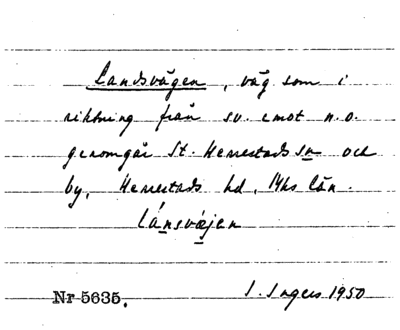 Landsvägen, väg som i
riktning från sv. emot n.o.
genomgår St. Herrestads sn och
by, Herrestads hd, Mhs län.
lánsvæjen
Nr 5635. I. Ingers 1950